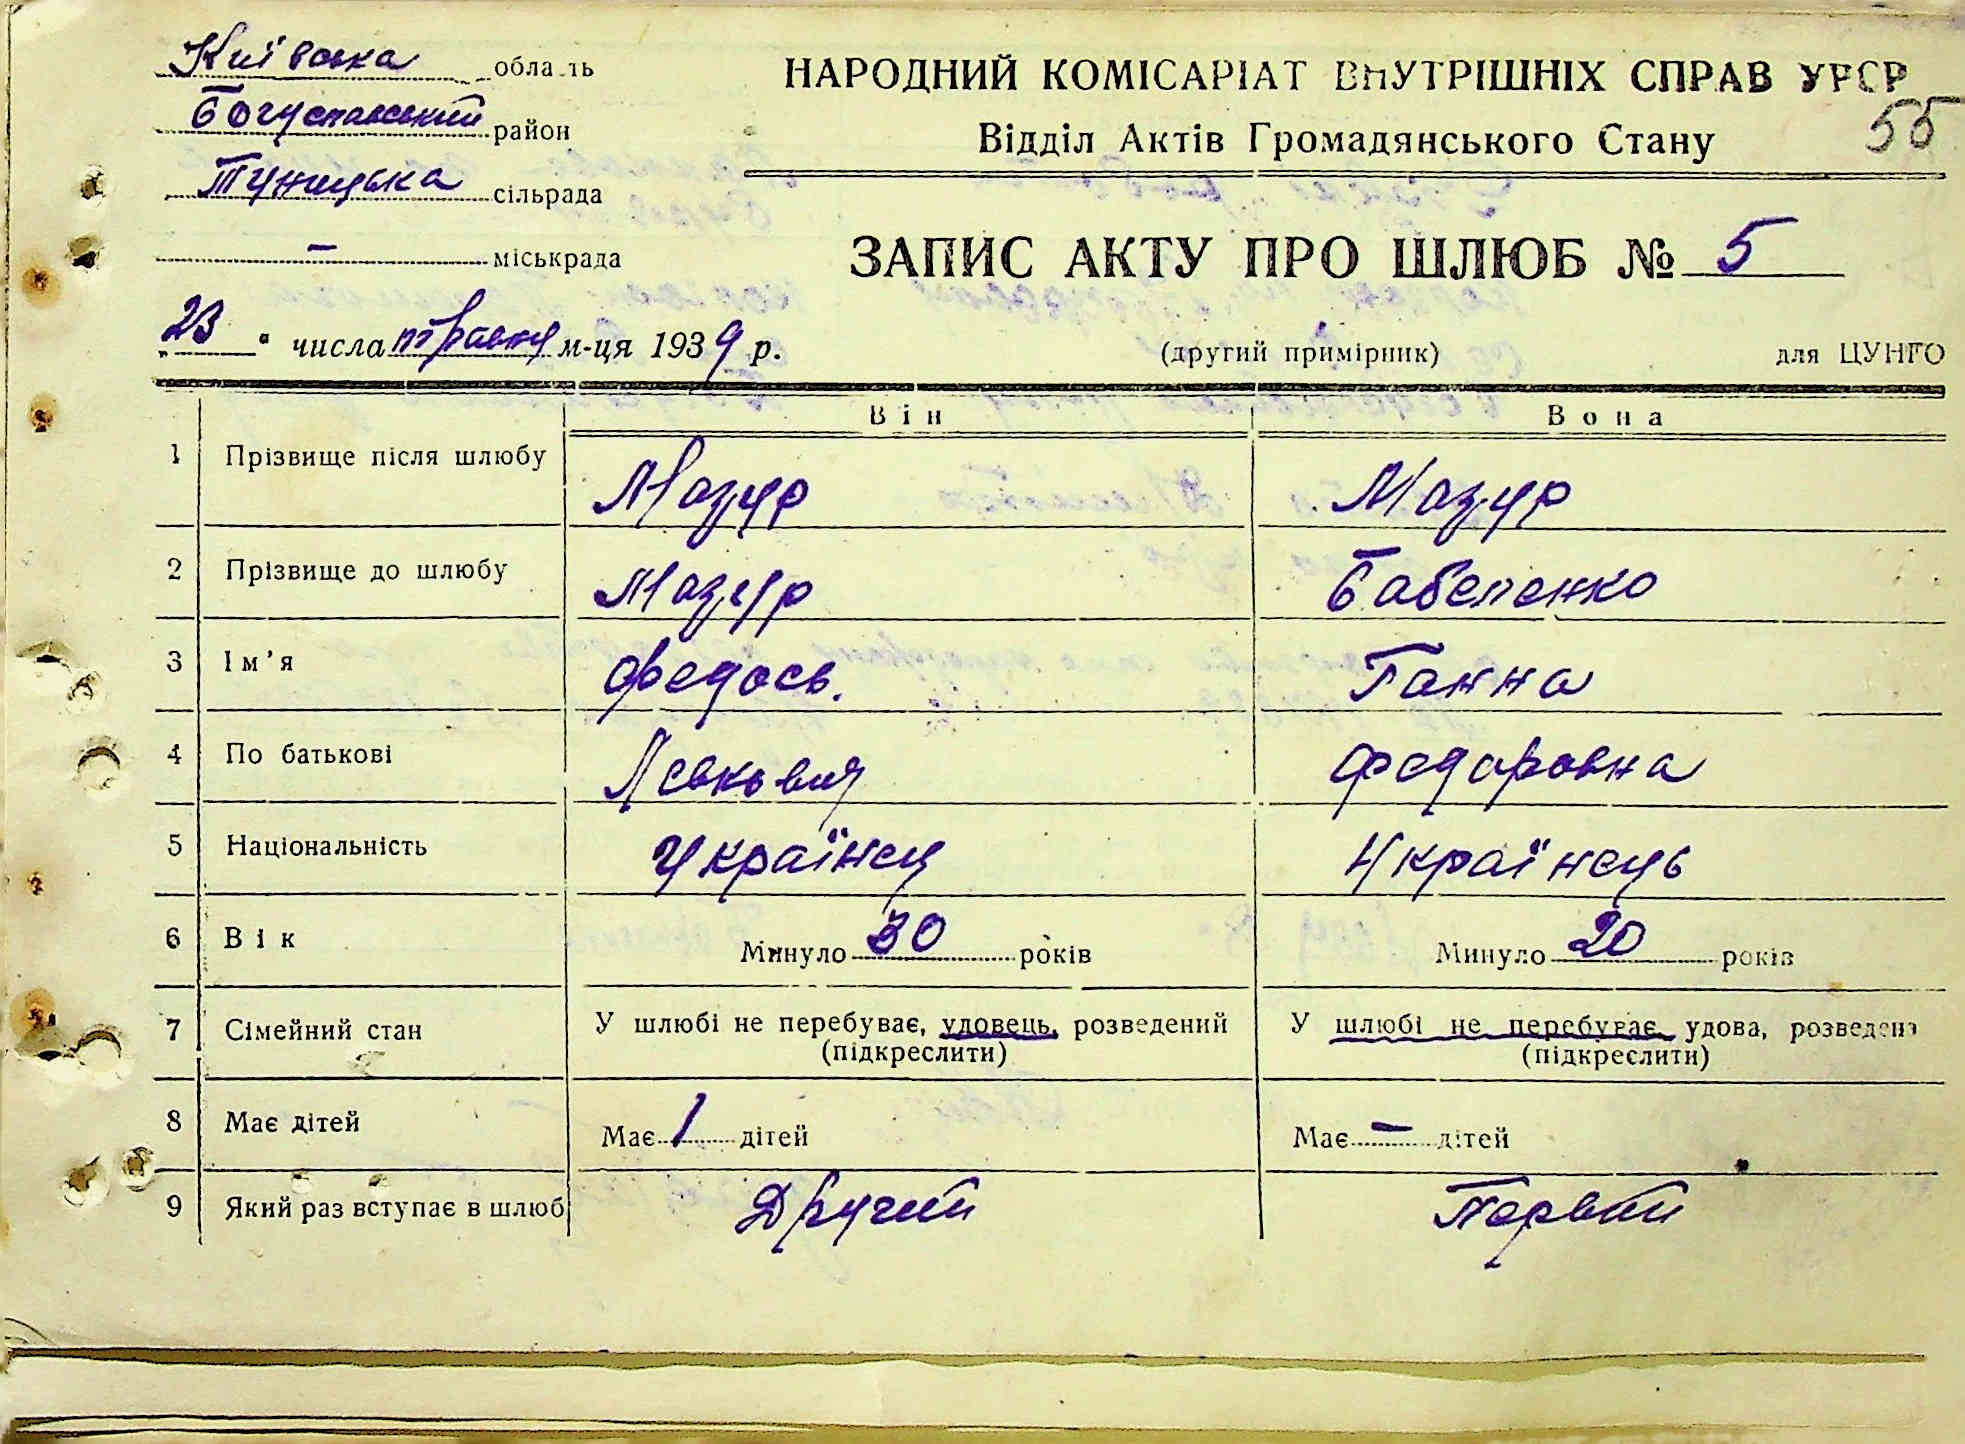 Київська область
Богуславський район
Туницька сільрада
— міськрада
НАРОДНИЙ КОМІСАРІАТ ВНУТРІШНІХ СПРАВ УРСР
55
Відділ Актів Громадянського Стану
ЗАПИС АКТУ ПРО ШЛЮБ № 5
„23" числа травня м-ця 1939 р.
(другий примірник)
для ЦУНГО
Він Вона
1 Прізвище після шлюбу Мазур Мазур
2 Прізвище до шлюбу Мазур Бабеленко
3 Ім'я Федось. Ганна
4 По батькові Левкович Федоровна
5 Національність Українец Українець
6 Вік Минуло 30 років Минуло 20 років
7 Сімейний стан У шлюбі не перебуває, удовець, розведений У шлюбі не перебуває, удова, розведена
(підкреслити) (підкреслити)
8 Має дітей Має 1 дітей Має — дітей
9 Який раз вступає в шлюб Другий Первий